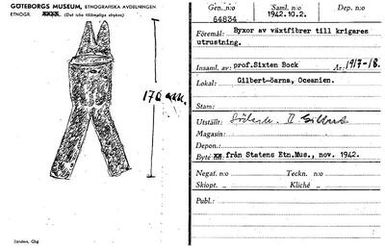 GÖTEBORGS MUSEUM, ETNOGRAFISKA AVDELNINGEN
ETNOGR. (Det icke tillämpliga strykes)
170 cm.
Sandén, Gbg
Gen. n:o 64834 Saml. n:o 1942.10.2. Dep. n:o
Föremål: Byxor av växtfibrer till krigares
utrustning.
Insaml. av: prof. Sixten Bock År: 1917-18.
Lokal: Gilbert-öarna, Oceanien.
Stam:
Utställt: Söderh. II Gilbert
Magasin:
Depon.:
Byte från Statens Etn.Mus., nov. 1942.
Negat. n:o Teckn. n:o
Skiopt. „ Kliché „
Publ.: